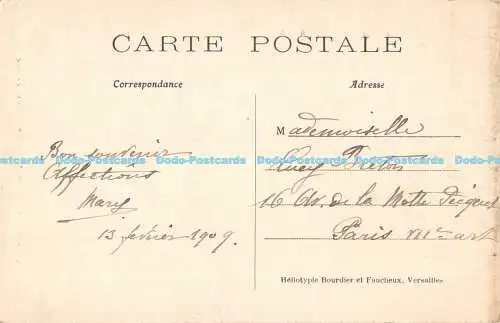 CARTE POSTALE
Correspondance
Adresse
Bon souvenir
Affections
Mary
13 février 1909.
Mademoiselle
Lucy Breton
16 Av. de la Motte Picquet
Paris
Héliotypie Bourdier et Faucheux, Versailles
Dodo-Postcards Dodo-Postcards Dodo-Postcards Dodo-Postcards Dodo-Postcards Dodo-Postcards